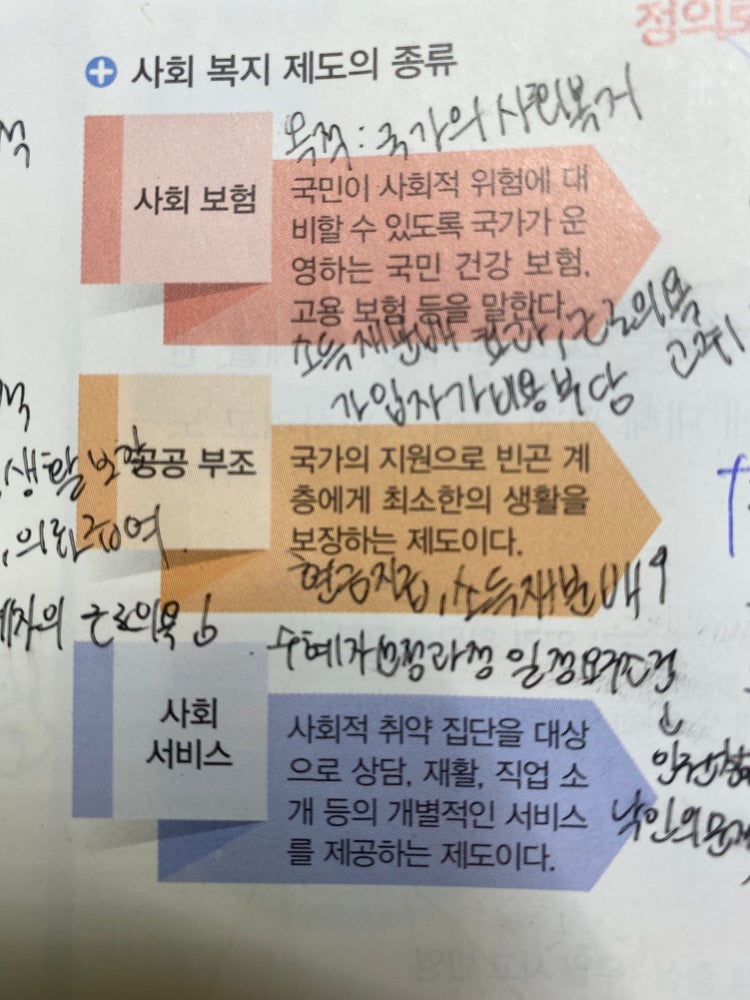 정의로
사회 복지 제도의 종류
목적: 국가의 사회복지
사회 보험
국민이 사회적 위험에 대
비할 수 있도록 국가가 운
영하는 국민 건강 보험,
고용 보험 등을 말한다.
소득 재분배 효과, 근로의욕
고취
가입자가 비용부담
공공 부조
생활보장
국가의 지원으로 빈곤 계
층에게 최소한의 생활을
보장하는 제도이다.
, 의료급여
현금지급, 소득재분배↑
근로의욕↓
수혜자 선정과정 일정
↓
사회
서비스
사회적 취약 집단을 대상
으로 상담, 재활, 직업 소
개 등의 개별적인 서비스
를 제공하는 제도이다.
낙인의 문제